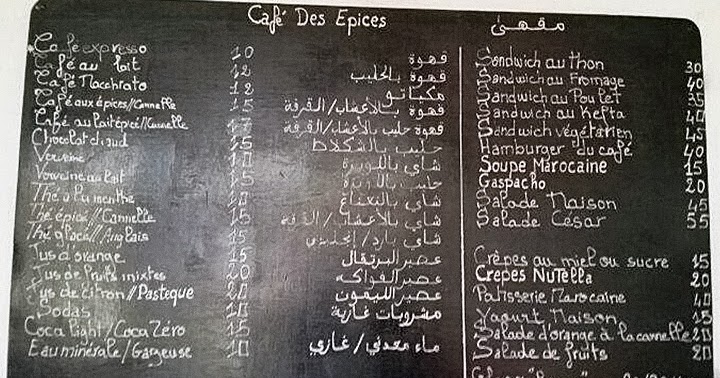 Café Des Epices
Café expresso 10 قهوة
Café au lait 12 قهوة بالحليب
Café Macchrato 12 مكياتو
Café aux épices//Cannelle 15 قهوة بالأعشاب/القرفة
Café au lait épicé//Cannelle 17 قهوة حليب بالأعشاب/القرفة
Chocolat chaud 15 حليب بالشكلاط
Verveine 10 شاي باللويزة
Verveine au lait 15
Thé à la menthe 10 شاي بالنعناع
Thé épicé//Cannelle 15 شاي بالأعشاب/القرفة
Thé glacé//Anglais 15 شاي بارد/إنجليزي
Jus d'orange 15 عصير البرتقال
Jus de fruits mixtes 20 عصير الفواكه
Jus de citron//Pasteque 20 عصير الليمون
Sodas 10 مشروبات غازية
Coca light/Coca Zéro 15
Eau minérale/Gazeuse 10 ماء معدني/غازي
مقهى
Sandwich au thon 30
Sandwich au Fromage 40
Sandwich au Poulet 35
Sandwich au Kefta 40
Sandwich végétarien 45
Hamburger du café 40
Soupe Marocaine 15
Gaspacho 20
Salade Maison 45
Salade César 55
Crêpes au miel ou sucre 15
Crepes Nutella 20
Patisserie Marocaine 40
Yagurt Maison 15
Salade d'orange à la cannelle 20
Salade de fruits 20